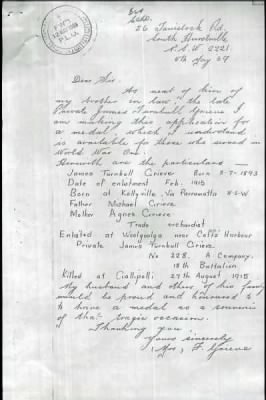 56 Tavistock Rd.
South Hurstville
N.S.W 2221
5th May 67
Dear Sir.
As next of kin of
my brother in law, the late
Private James Turnbull Grieve I
am making this application for
a medal, which I understand
is available to those who served in
World War One.
Herewith are the particulars —
James Turnbull Grieve Born 8-7-1893
Date of enlistment Feb. 1915
Born at Kellyville Via Parramatta N.S.W
Father Michael Grieve
Mother Agnes Grieve
Trade orchardist
Enlisted at Woolgoolga near Coffs Harbour
Private James Turnbull Grieve
No 228. A Company.
18th Battalion
Killed at Gallipoli 27th August 1915
My husband and others of his family
would be proud and honoured to
to have a medal as a souvenir
of that tragic occasion.
Thanking you
Yours sincerely
(Mrs) F Grieve